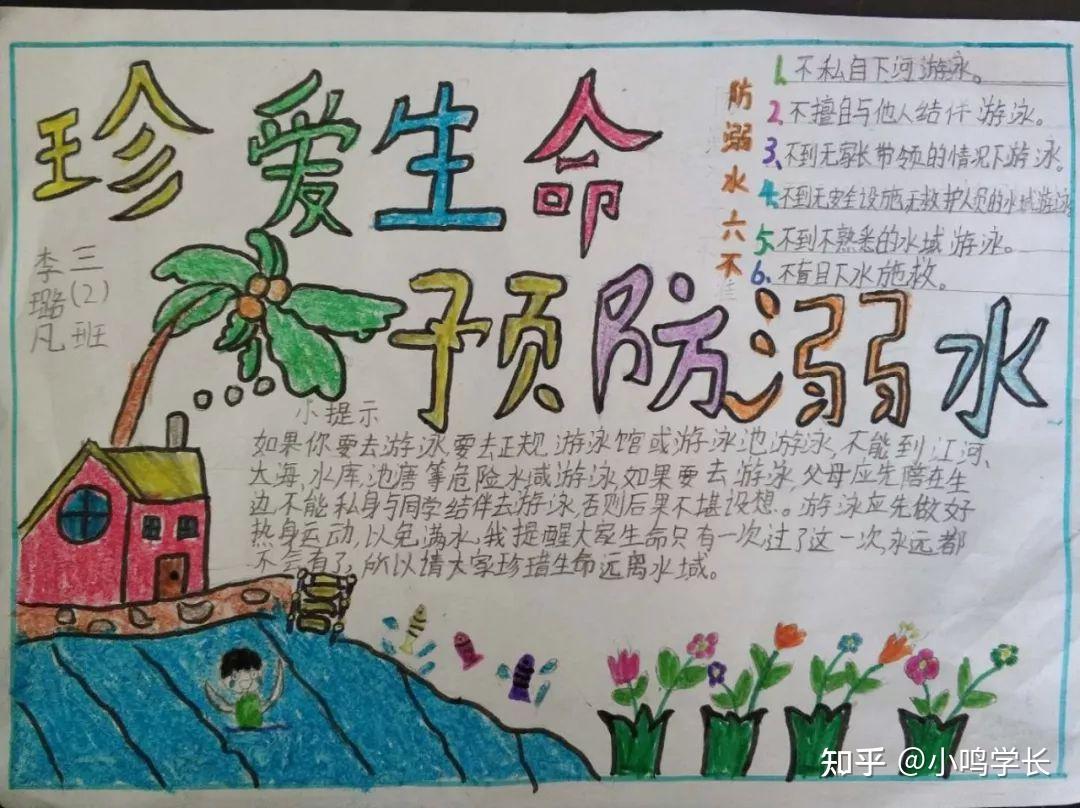 珍爱生命
预防溺水
防溺水六不
1.不私自下河游泳。
2.不擅自与他人结伴游泳。
3.不到无家长带领的情况下游泳。
4.不到无安全设施,无救护人员的水域游泳
5.不到不熟悉的水域游泳。
6.不盲目下水施救。
三(2)班
李璐凡
小提示
如果你要去游泳,要去正规游泳馆或游泳池游泳,不能到江河、
大海,水库,池唐等危险水域游泳,如果要去游泳,父母应先陪在生
边,不能私身与同学结伴去游泳,否则后果不堪设想。游泳应先做好
热身运动,以免满水,我提醒大家生命只有一次过了这一次,永远都
不会有了,所以请大家珍惜生命远离水域。
知乎 @小鸣学长